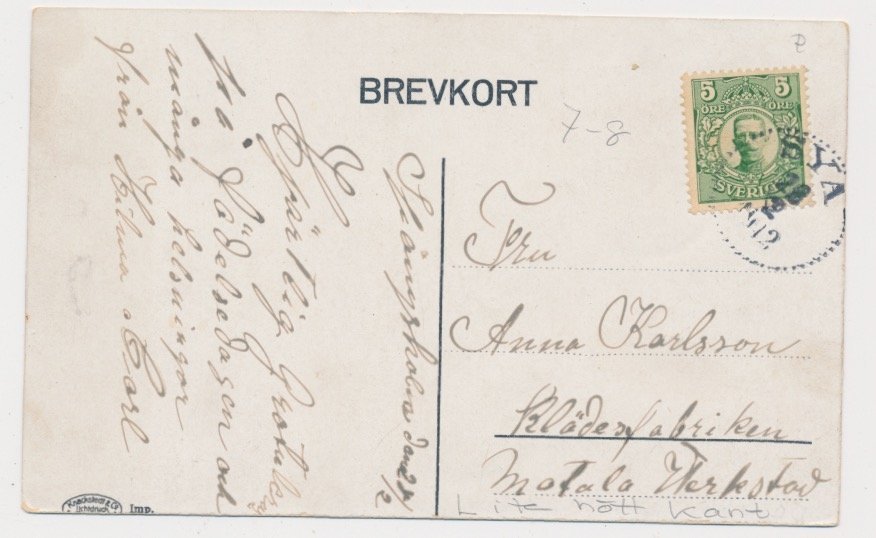 BREVKORT
P
7-8
5 5
ÖRE ÖRE
SVERIGE
SYA
12
Stångsholm den 24/2
Hjärtlig Gratulera
på födelsedagen och
många helsningar
från Hilma o Carl
Fru
Anna Karlsson
Klädesfabriken
Motala Verkstad
Lite nött kant
Knackstedt & Co
Lichtdruck
Imp.